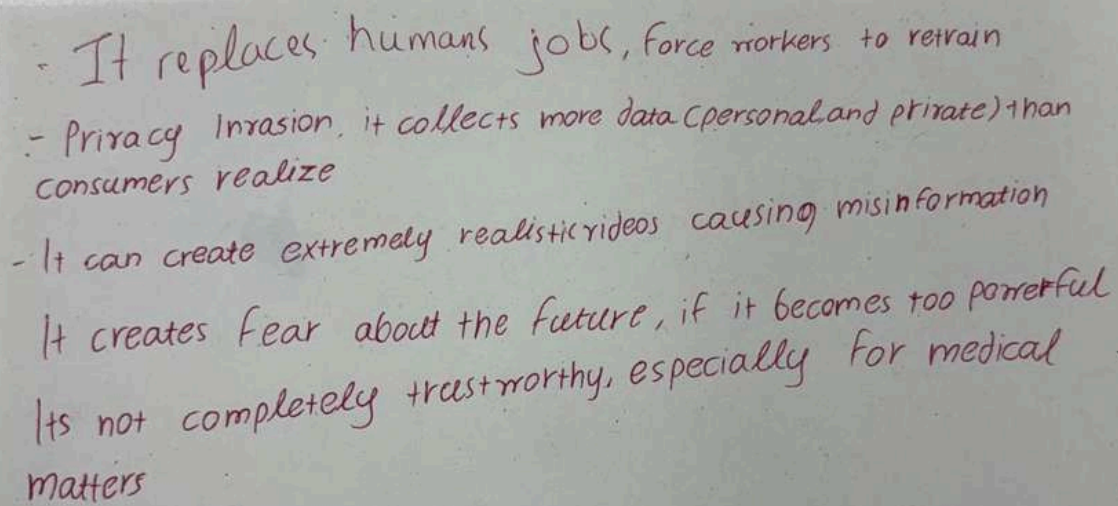 - It replaces humans jobs, force workers to retrain
- Privacy Invasion, it collects more data (personal and private) than
consumers realize
- It can create extremely realistic videos causing misinformation
It creates fear about the future, if it becomes too powerful
Its not completely trustworthy, especially for medical
matters